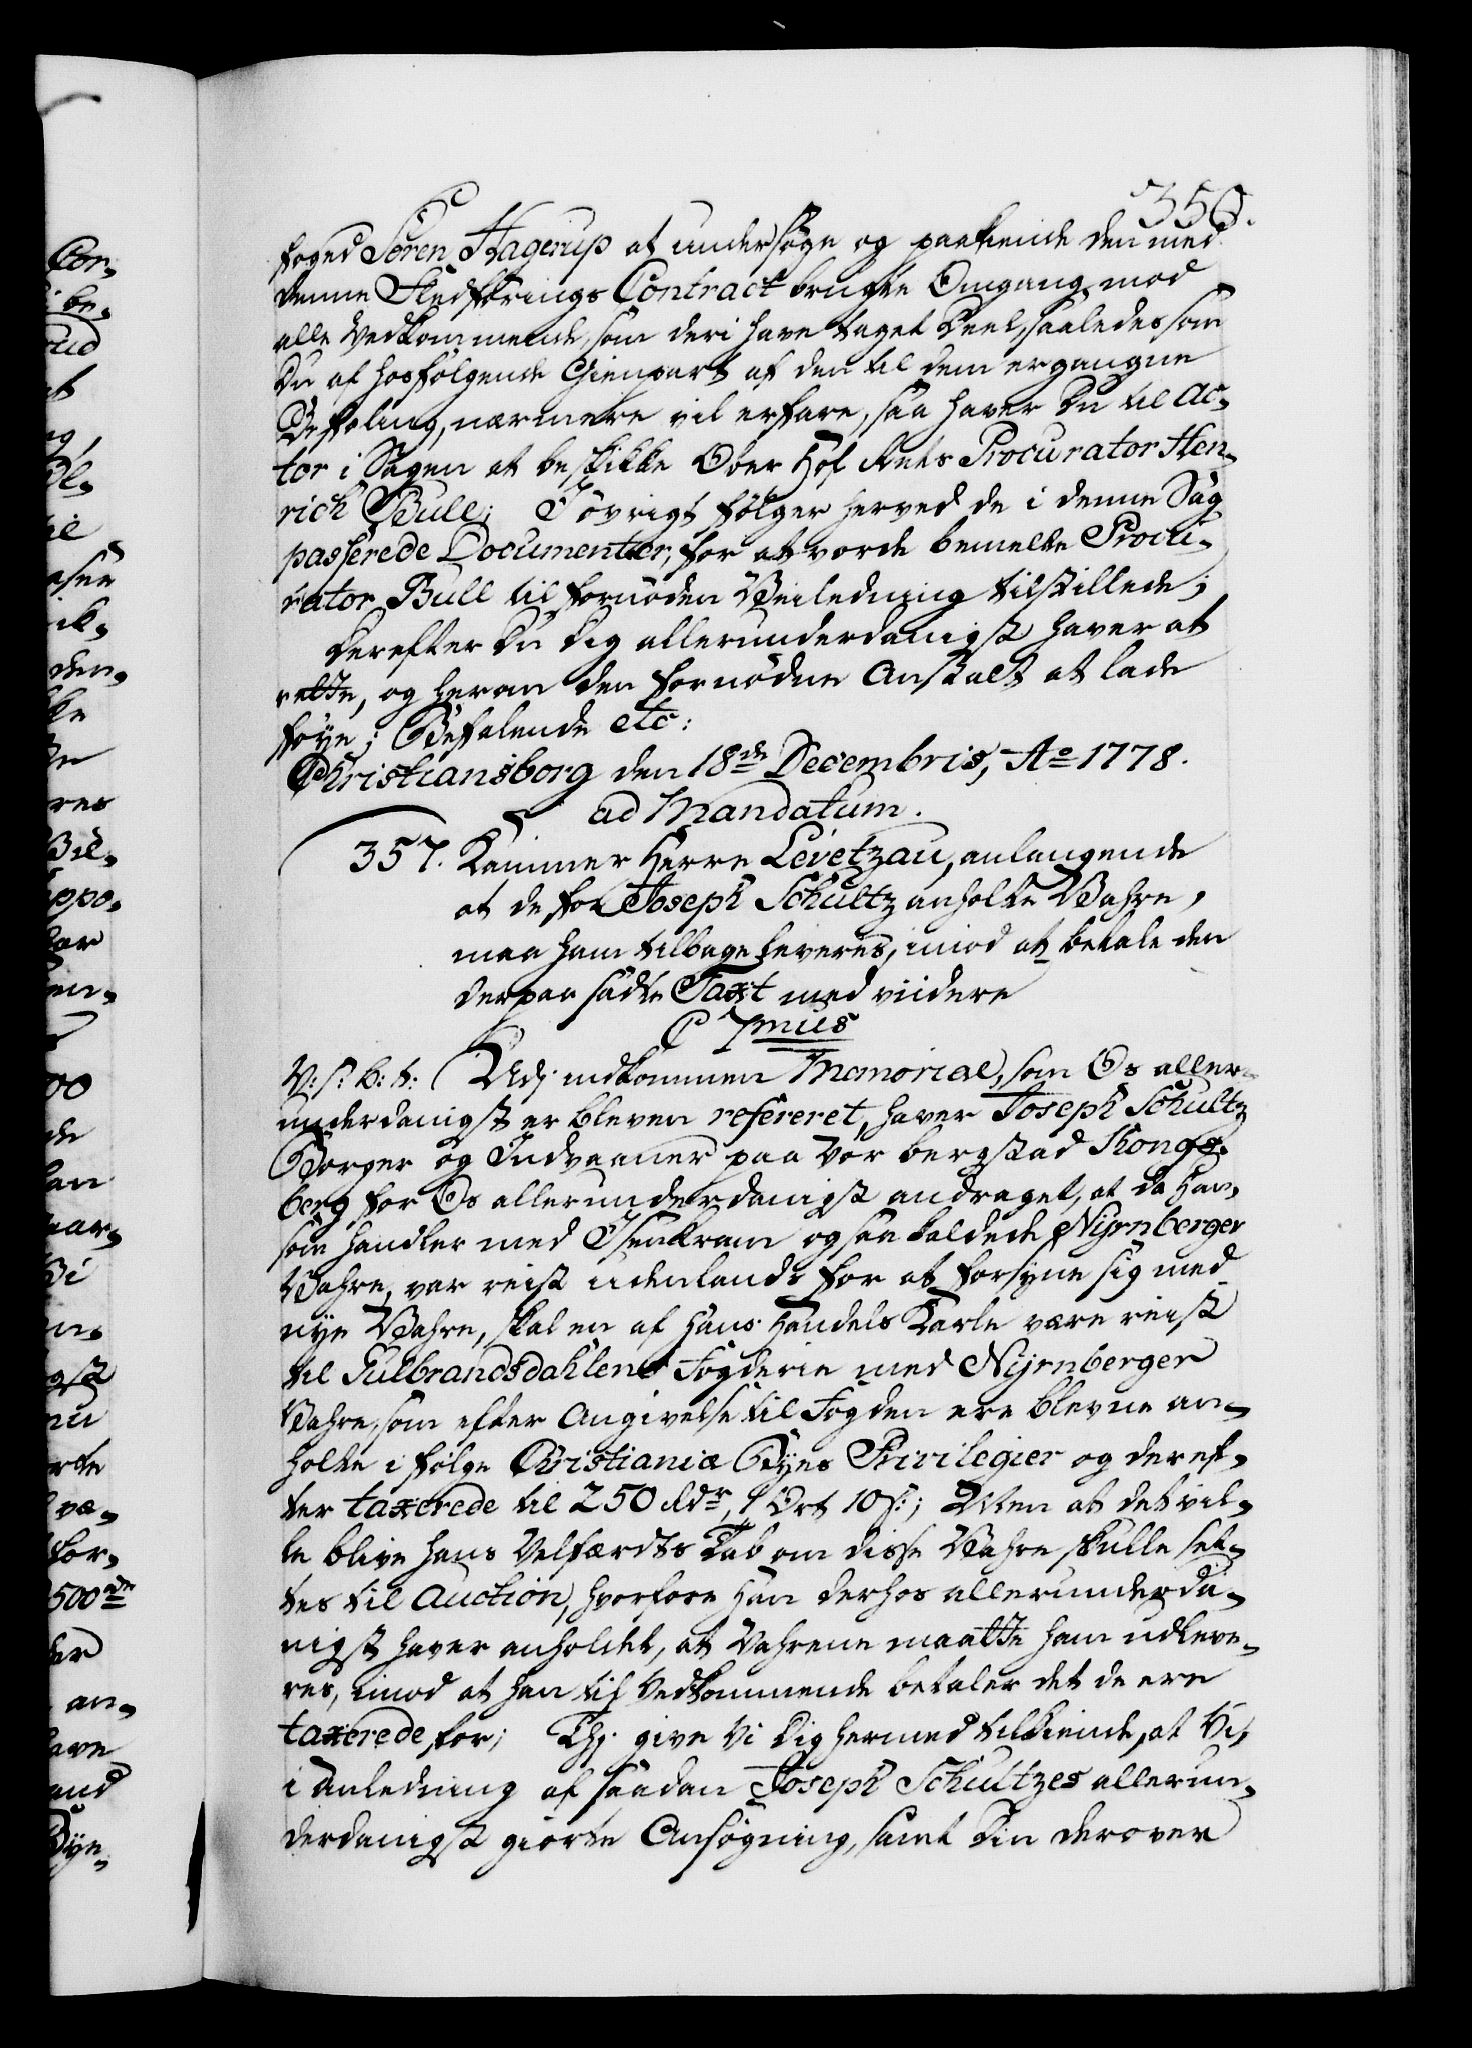 350.
foged Søren Hagerup at undersøge og paakiende den med
denne Skedførings Contract brugte Omgang mod
alle Vedkommende, som deri have taget Deel, saaledes som
Du af hosfølgende Gienpart af den til dem ergangne
Befaling, nærmere vil erfare, saa haver Du til Ac-
tor i Sagen at beskikke Ober Hof Rets Procurator Hen-
rich Bull; I øvrigt følger herved de i denne Sag
passerede Documenter, for at vorde bemelte Procu-
rator Bull til fornøden Veiledning tilstillede;
Derefter Du Dig allerunderdanigst haver at
rette, og herom den fornødne Anstalt at lade
føye; Befalende etc:
Christiansborg den 18de Decembris, Ao 1778.
ad Mandatum.
357. Kammer Herre Levetzau, anlangende
at de for Joseph Schultz anholdte Vahre,
maa ham tilbage leveres, imod at betale den
derpaa satte Taxt med viidere
C 7mus
V: s: b: t: Udj indkommen Memorial, som Os aller-
underdanigst er bleven refereret, haver Joseph Schultz
Borger og Indvaaner paa Vor bergstad Kongs-
berg for Os allerunderdanigst andraget, at da han,
som handler med Isenkram og saa kaldede Nyrnberger
Vahre, var reist udenlands for at forsyne sig med
nye Vahre, skal en af hans Handels Karle være reist
til Gulbrandsdahlens Fogderie med Nyrnberger
Vahre, som efter Angivelse til Fogden ere blevne an-
holdte i følge Christianiæ Byes Privilegier og deref-
ter taxerede til 250 Rdr, 1 Ort 10 s:; Men at det vil-
le blive hans Velfærdts Tab om disse Vahre skulle set-
tes til Auction, hvorfore han derhos allerunderda-
nigst haver anholdet, at Vahrene maatte ham udleve-
res, imod at han til Vedkommende betaler det de ere
taxerede for; Thj give Vi Dig hermed tilkiende, at Vi,
i Anledning af saadan Joseph Schultzes allerun-
derdanigst giorte Ansøgning, samt Din derover